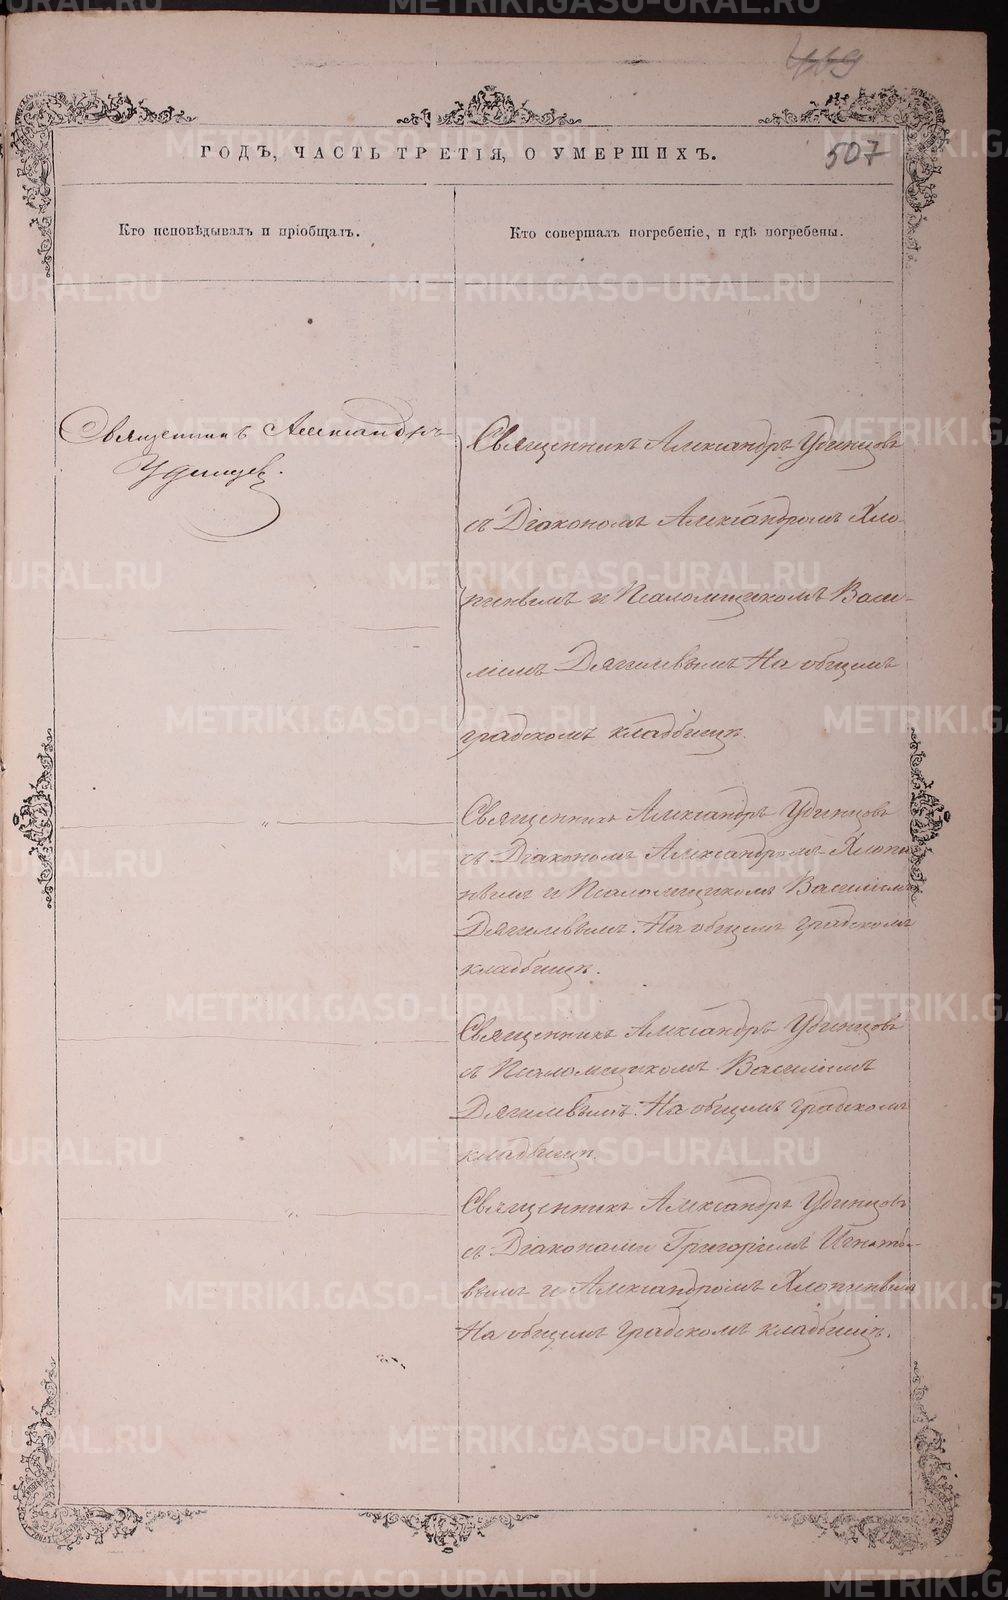 ГОДЪ, ЧАСТЬ ТРЕТІЯ, О УМЕРШИХЪ.
507
Кто исповѣдывалъ и пріобщалъ.
Кто совершалъ погребеніе, и гдѣ погребены.
Священникъ Александръ
Удинцев.
Священникъ Александръ Удинцовъ
съ Діакономъ Александромъ Хло-
пиневымъ и Псаломщикомъ Васи-
ліемъ Дягилевымъ На общемъ
градскомъ кладбищѣ.
Священникъ Александръ Удинцовъ
съ Діакономъ Александромъ Хлопи
невымъ и Псаломщикомъ Василіемъ
Дягилевымъ. На общемъ градскомъ
кладбищѣ.
Священникъ Александръ Удинцовъ
съ Псаломщикомъ Василіемъ
Дягилевымъ. На общемъ градскомъ
кладбищѣ.
Священникъ Александръ Удинцовъ
съ Діаконами Григоріемъ Игнать-
вымъ и Александромъ
На общемъ градскомъ кладбищѣ.
METRIKI.GASO-URAL.RU